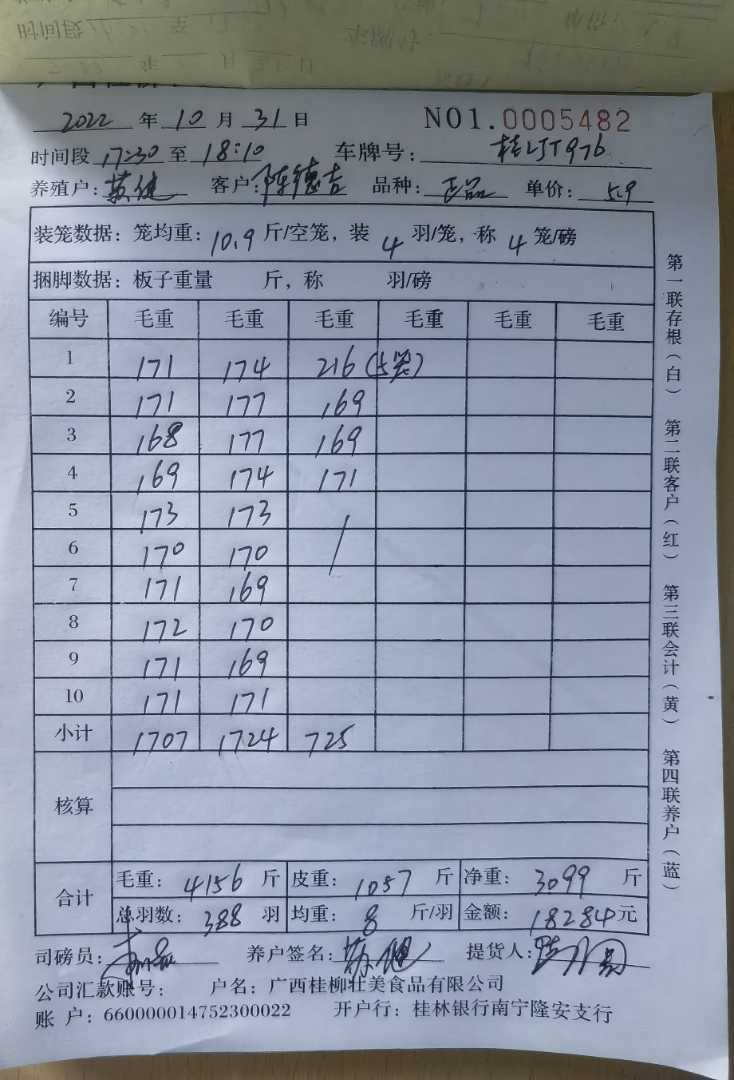 2022 年 10 月 31 日 NO1.0005482
时间段 17:30 至 18:10 车牌号: 桂LJT976
养殖户: 苏健 客户: 陈德吉 品种: 正品 单价: 5.9
装笼数据: 笼均重: 10.9 斤/空笼, 装 4 羽/笼, 称 4 笼/磅
捆脚数据: 板子重量 斤, 称 羽/磅
编号 毛重 毛重 毛重 毛重 毛重 毛重
1 171 174 216 (5笼)
2 171 177 169
3 168 177 169
4 169 174 171
5 173 173
6 170 170
7 171 169
8 172 170
9 171 169
10 171 171
小计 1707 1724 725
核算
合计 毛重: 4156 斤 皮重: 1057 斤 净重: 3099 斤
总羽数: 388 羽 均重: 8 斤/羽 金额: 18284 元
司磅员: 养户签名: 苏健 提货人:
公司汇款账号: 户名: 广西桂柳壮美食品有限公司
账户: 660000014752300022 开户行: 桂林银行南宁隆安支行
第一联存根(白) 第二联客户(红) 第三联会计(黄) 第四联养户(蓝)